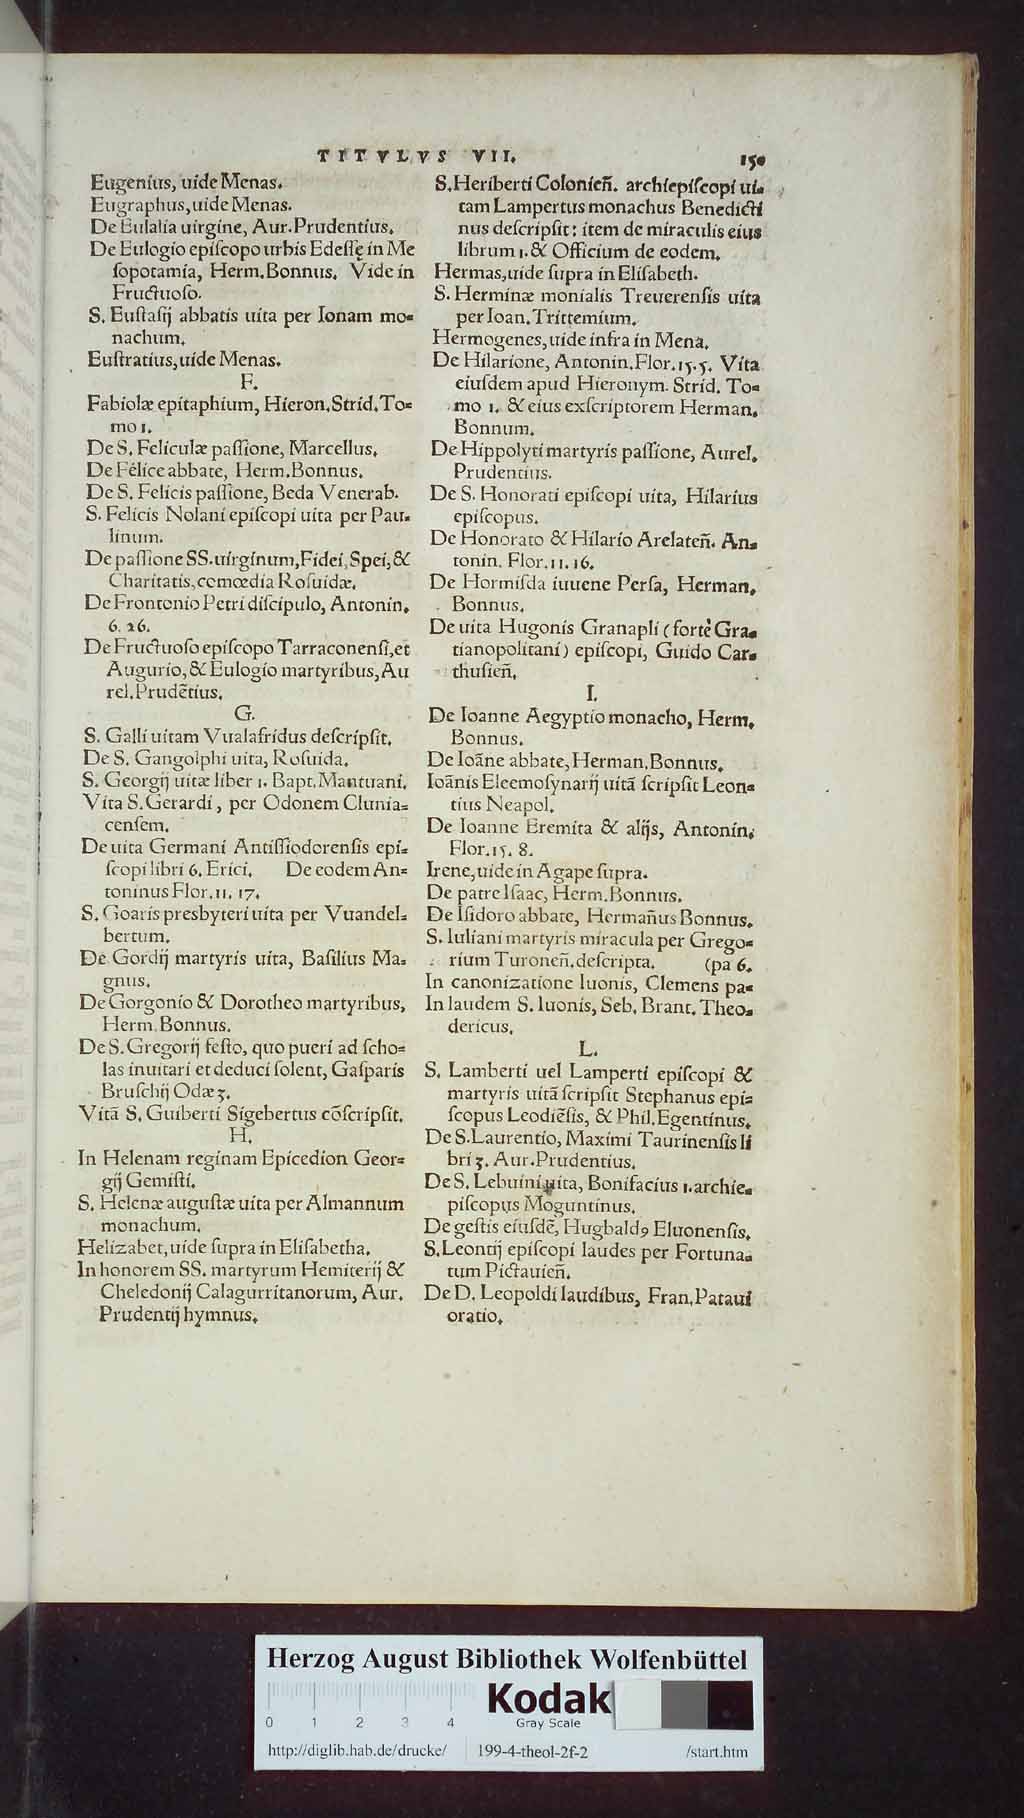 TITVLVS VII.
150
Eugenius, uide Menas.
Eugraphus, uide Menas.
De Eulalia uirgine, Aur. Prudentius.
De Eulogio epiſcopo urbis Edeſſę in Me
ſopotamia, Herm. Bonnus. Vide in
Fructuoſo.
S. Euſtaſij abbatis uita per Ionam mo=
nachum.
Euſtratius, uide Menas.
F.
Fabiolæ epitaphium, Hieron. Strid. To=
mo 1.
De S. Feliculæ paſſione, Marcellus.
De Felice abbate, Herm. Bonnus.
De S. Felicis paſſione, Beda Venerab.
S. Felicis Nolani epiſcopi uita per Pau=
linum.
De paſſione SS. uirginum, Fidei, Spei, &
Charitatis, comœdia Roſuidæ.
De Frontonio Petri diſcipulo, Antonin.
6. 26.
De Fructuoſo epiſcopo Tarraconenſi, et
Augurio, & Eulogio martyribus, Au
rel. Prudētius.
G.
S. Galli uitam Vualafridus deſcripſit.
De S. Gangolphi uita, Roſuida.
S. Georgij uitæ liber 1. Bapt. Mantuani.
Vita S. Gerardi, per Odonem Clunia=
cenſem.
De uita Germani Antiſſiodorenſis epi=
ſcopi libri 6. Erici. De eodem An=
toninus Flor. 11. 17.
S. Goaris presbyteri uita per Vuandel=
bertum.
De Gordij martyris uita, Baſilius Ma=
gnus.
De Gorgonio & Dorotheo martyribus,
Herm. Bonnus.
De S. Gregorij feſto, quo pueri ad ſcho=
las inuitari et deduci ſolent, Gaſparis
Bruſchij Odæ 3.
Vitā S. Guiberti Sigebertus cōſcripſit.
H.
In Helenam reginam Epicedion Geor=
gij Gemiſti.
S. Helenæ auguſtæ uita per Almannum
monachum.
Helizabet, uide ſupra in Eliſabetha.
In honorem SS. martyrum Hemiterij &
Cheledonij Calagurritanorum, Aur.
Prudentij hymnus.
S. Heriberti Colonieñ. archiepiſcopi ui=
tam Lampertus monachus Benedicti
nus deſcripſit: item de miraculis eius
librum 1. & Officium de eodem.
Hermas, uide ſupra in Eliſabeth.
S. Herminæ monialis Treuerenſis uita
per Ioan. Trittemium.
Hermogenes, uide infra in Mena.
De Hilarione, Antonin. Flor. 15. 5. Vita
eiuſdem apud Hieronym. Strid. To=
mo 1. & eius exſcriptorem Herman.
Bonnum.
De Hippolyti martyris paſſione, Aurel.
Prudentius.
De S. Honorati epiſcopi uita, Hilarius
epiſcopus.
De Honorato & Hilario Arelateñ. An=
tonin. Flor. 11. 16.
De Hormiſda iuuene Perſa, Herman.
Bonnus.
De uita Hugonis Granapli (fortè Gra=
tianopolitani) epiſcopi, Guido Car=
thuſieñ.
I.
De Ioanne Aegyptio monacho, Herm.
Bonnus.
De Ioāne abbate, Herman. Bonnus.
Ioānis Eleemoſynarij uitā ſcripſit Leon=
tius Neapol.
De Ioanne Eremita & alijs, Antonin.
Flor. 15. 8.
Irene, uide in Agape ſupra.
De patre Iſaac, Herm. Bonnus.
De Iſidoro abbate, Hermañus Bonnus.
S. Iuliani martyris miracula per Grego=
rium Turoneñ. deſcripta. (pa 6.
In canonizatione Iuonis, Clemens pa=
In laudem S. Iuonis, Seb. Brant. Theo=
dericus.
L.
S. Lamberti uel Lamperti epiſcopi &
martyris uitā ſcripſit Stephanus epi=
ſcopus Leodiēſis, & Phil. Egentinus.
De S. Laurentio, Maximi Taurinenſis li
bri 3. Aur. Prudentius.
De S. Lebuini uita, Bonifacius 1. archie=
piſcopus Moguntinus.
De geſtis eiuſdē, Hugbaldꝰ Eluonenſis.
S. Leontij epiſcopi laudes per Fortuna=
tum Pictauieñ.
De D. Leopoldi laudibus, Fran. Pataui
oratio.
Herzog August Bibliothek Wolfenbüttel
Kodak
Gray Scale
0 1 2 3 4
http://diglib.hab.de/drucke/ 199-4-theol-2f-2 /start.htm